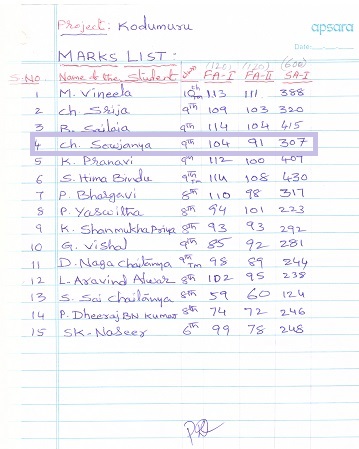 Project: Kodumuru
apsara
Date:
MARKS LIST:
(120) (120) (600)
S.NO. Name of the Student FA-I FA-II SA-I
1 M. Vineela 10th 113 111 388
2 Ch Srija 9th 109 103 320
3 B. Sailaja 9th 114 104 415
4 Ch. Sowjanya 9th 104 91 307
5 K. Pranavi 9th 112 100 407
6 S. Hima Bindu 9th 114 108 430
7 P. Bhargavi 8th 110 98 317
8 P. Yaswitha 8th 94 101 223
9 K. Shanmukha Priya 8th 93 93 292
10 G. Vishal 9th 85 92 281
11 D. Naga Chaitanya 9th 98 89 244
12 L. Aravind 8th 102 95 238
13 S. Sai Chaitanya 8th 59 60 124
14 P. Dheeraj BN Kumar 8th 74 72 246
15 SK. Naseer 6th 99 78 248